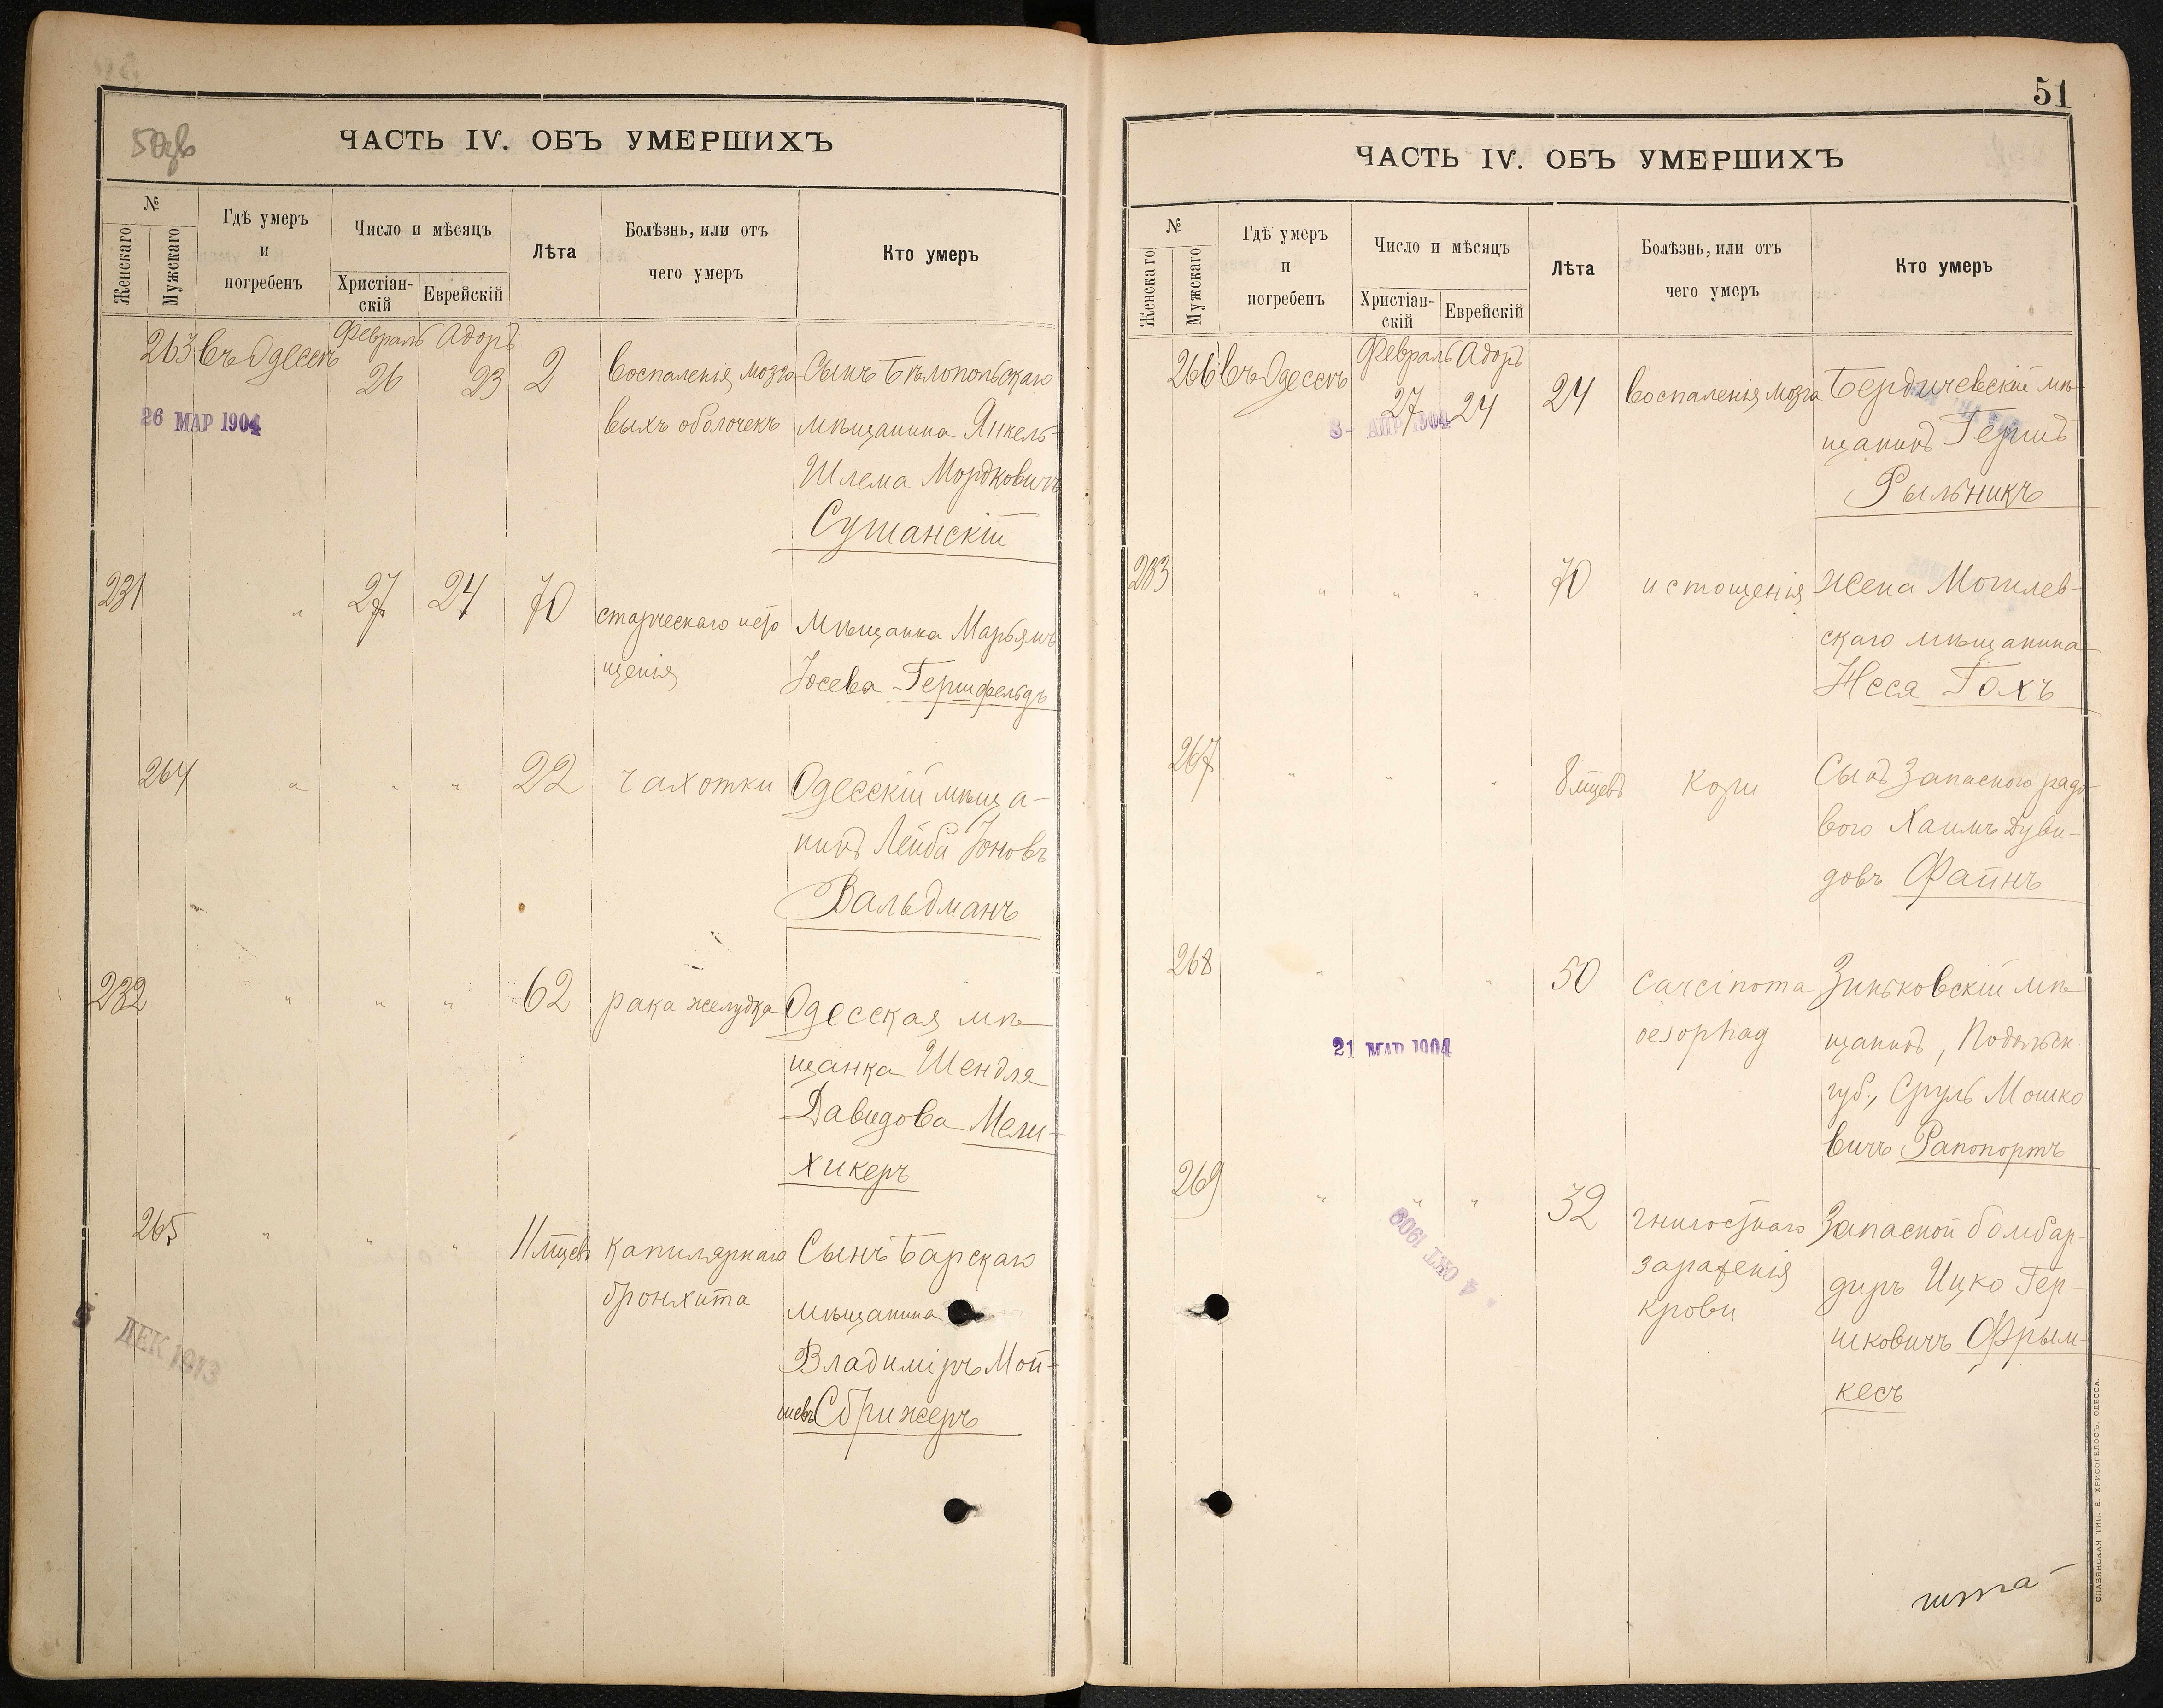 50об
ЧАСТЬ IV. ОБЪ УМЕРШИХЪ
№
Женскаго
Мужскаго
Гдѣ умеръ
и
погребенъ
Число и мѣсяцъ
Христіан-
скій
Еврейскій
Лѣта
Болѣзнь, или отъ
чего умеръ
Кто умеръ
263 въ Одессѣ Февраль 26 Адоръ 23 2 воспаленія мозго- Сынъ Бѣлопольскаго
26 МАР 1904
выхъ оболочекъ мѣщанина Янкель-
Шлема Мордковичъ
Сушанскій
231 " 27 24 70 старческаго исто мѣщанка Марьямъ
щенія Іосева Гершфельдъ
264 " " " 22 чахотки Одесскій мѣща-
нинъ Лейба Іоновъ
Вальдманъ
232 " " " 62 рака желудка Одесская мѣ-
щанка Шендля
Давидова Мели-
хикеръ
265 " " " 11 мцевъ капилярнаго Сынъ Барскаго
бронхита мѣщанина
Владиміръ Мой-
шевъ Сбрижеръ
5 ДЕК 1913
51
ЧАСТЬ IV. ОБЪ УМЕРШИХЪ
№
Женскаго
Мужскаго
Гдѣ умеръ
и
погребенъ
Число и мѣсяцъ
Христіан-
скій
Еврейскій
Лѣта
Болѣзнь, или отъ
чего умеръ
Кто умеръ
266 въ Одессѣ Февраль 27 Адоръ 24 24 воспаленія мозга Бердичевскій мѣ-
8- АПР 1904
щанинъ Гершъ
Рыльникъ
283 " " " 70 истощенія жена Могилев-
скаго мѣщанина
Неся Гохъ
267 " " " 8 мцевъ кори Сынъ Запасного рядо-
вого Хаимъ Дуви-
довъ Файнъ
268 " " " 50 carcinoma Зиньковскій мѣ-
oesophag щанинъ, Подольск
21 МАР 1904
губ., Сруль Мошко
вичъ Рапопортъ
269 " " " 32 гнилостнаго Запасной бомбар-
4 ОКТ 1909
зараженія диръ Ицко Гер-
крови шковичъ Фрым-
кесъ
СЛАВЯНСКАЯ ТИП. Е. ХРИСОГЕЛОСЪ, ОДЕССА.